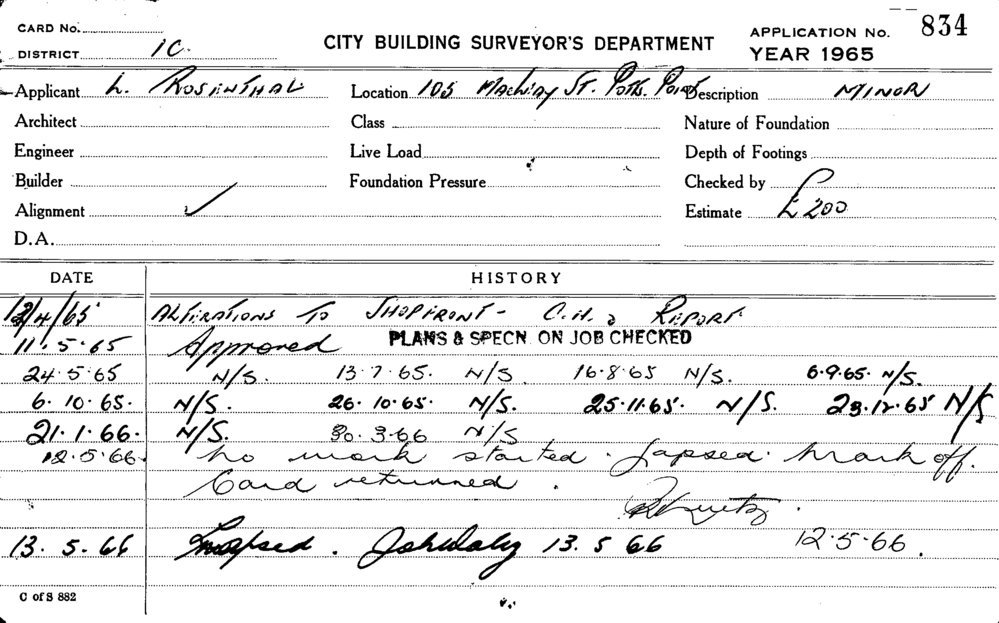 CARD No.
DISTRICT 1C.
CITY BUILDING SURVEYOR'S DEPARTMENT
APPLICATION No. 834
YEAR 1965
Applicant L. ROSENTHAL Location 105 Macleay St. Potts Point Description MINOR
Architect Class Nature of Foundation
Engineer Live Load Depth of Footings
Builder Foundation Pressure Checked by
Alignment ✓ Estimate £200
D.A.
DATE HISTORY
/4/65 ALTERATIONS TO SHOPFRONT - C.H. REPORT
11.5.65 Approved PLANS & SPECN. ON JOB CHECKED
24.5.65 N/S. 13.7.65. N/S. 16.8.65 N/S. 6.9.65. N/S.
6.10.65. N/S. 26.10.65. N/S. 25.11.65. N/S. 23.12.65 N/S
21.1.66. N/S. 30.3.66 N/S
12.5.66. No work started. Lapsed. Mark off.
Card returned.
13.5.66 Lapsed. 13 5 66 12.5.66.
C of S 882